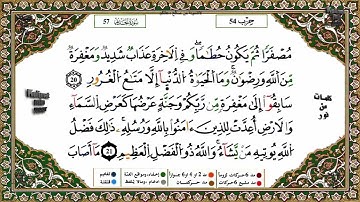 حزب 54
سورة الحديد 57
مُصْفَرّاٗ ثُمَّ يَكُونُ حُطَٰماٗ وَفِي اِلَاخِرَةِ عَذَابٞ شَدِيدٞ وَمَغْفِرَةٞ
مِّنَ اَللَّهِ وَرِضْوَٰنٞ وَمَا اَلْحَيَوٰةُ اُلدُّنْيَا إِلَّا مَتَٰعُ اُلْغُرُورِ 20
سَابِقُوٓاْ إِلَىٰ مَغْفِرَةٖ مِّن رَّبِّكُمْ وَجَنَّةٍ عَرْضُهَا كَعَرْضِ اِلسَّمَآءِ
وَالَارْضِ أُعِدَّتْ لِلذِينَ ءَامَنُواْ بِاللَّهِ وَرُسُلِهِۦ ذَٰلِكَ فَضْلُ
اُللَّهِ يُوتِيهِ مَنْ يَّشَآءُ وَاللَّهُ ذُو اُلْفَضْلِ اِلْعَظِيمِ 21 مَآ أَصَابَ
كلمات
من
نور